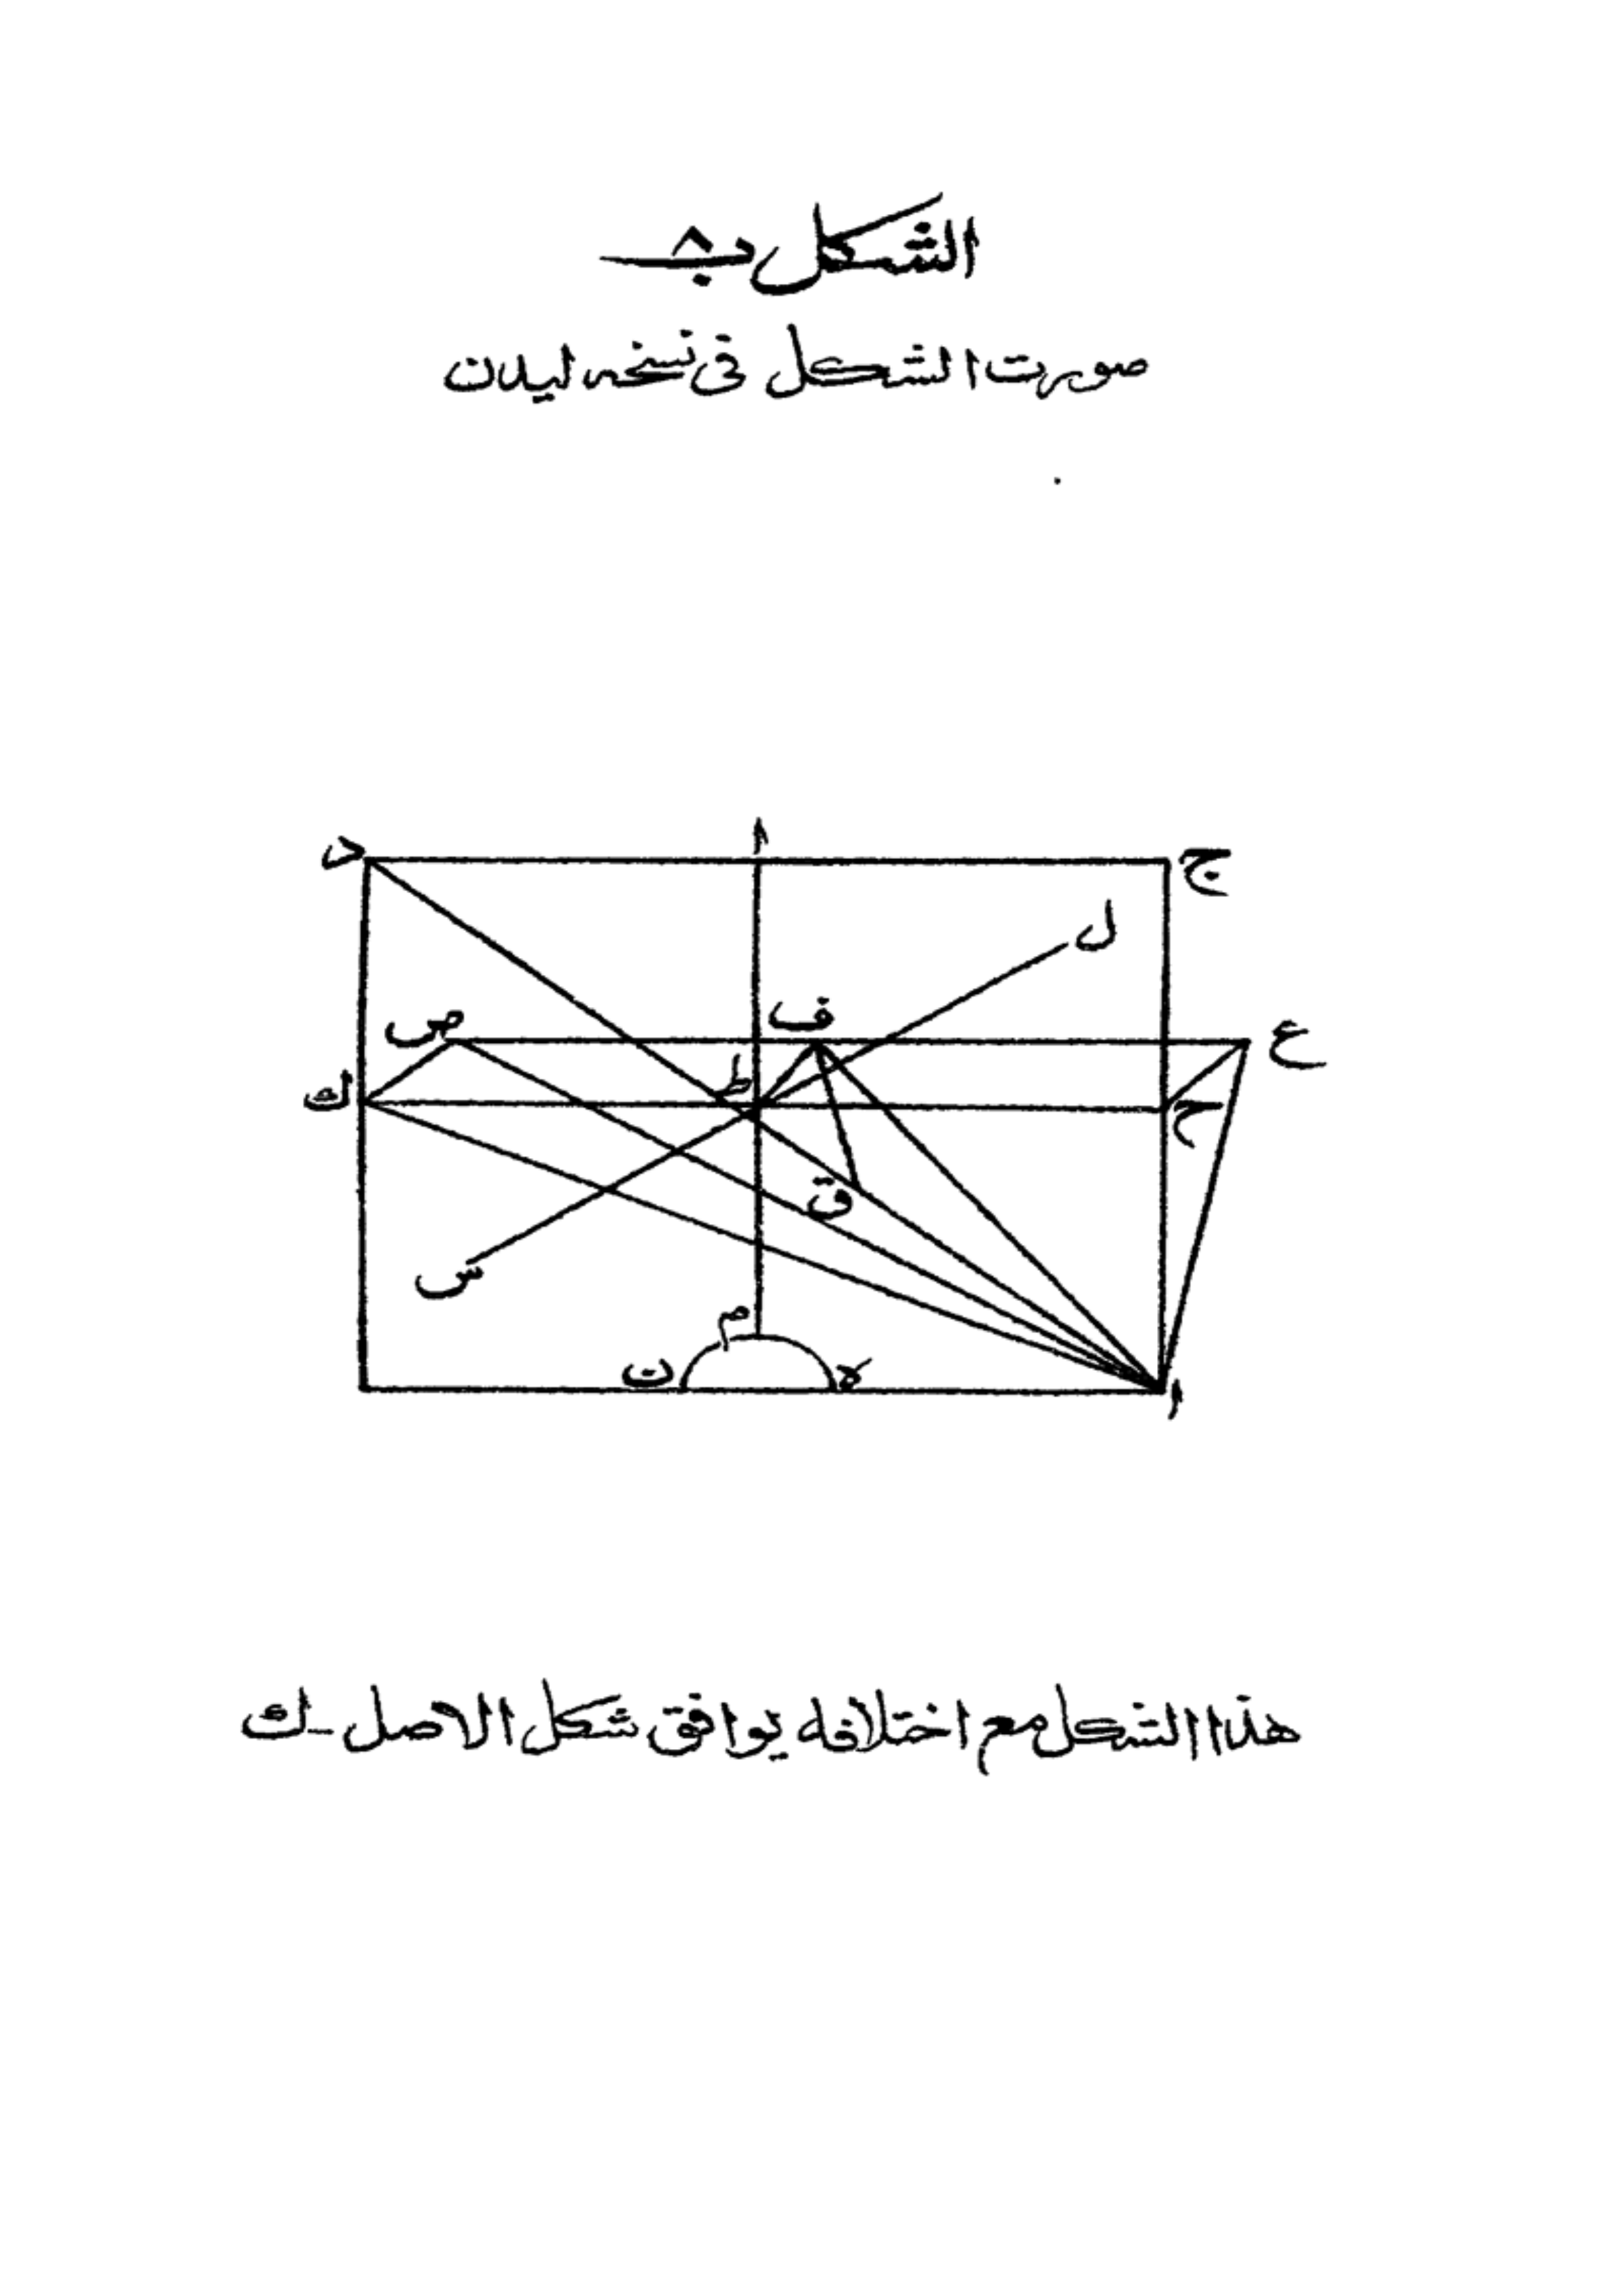 الشكل ب ٨
صورت الشكل فى نسخه ليدن
د
ا
ج
ل
ص
ف
ع
ك
ط
ح
ق
س
م
ن
ه
ا
هذا الشكل مع اختلافه يوافق شكل الاصل - ك